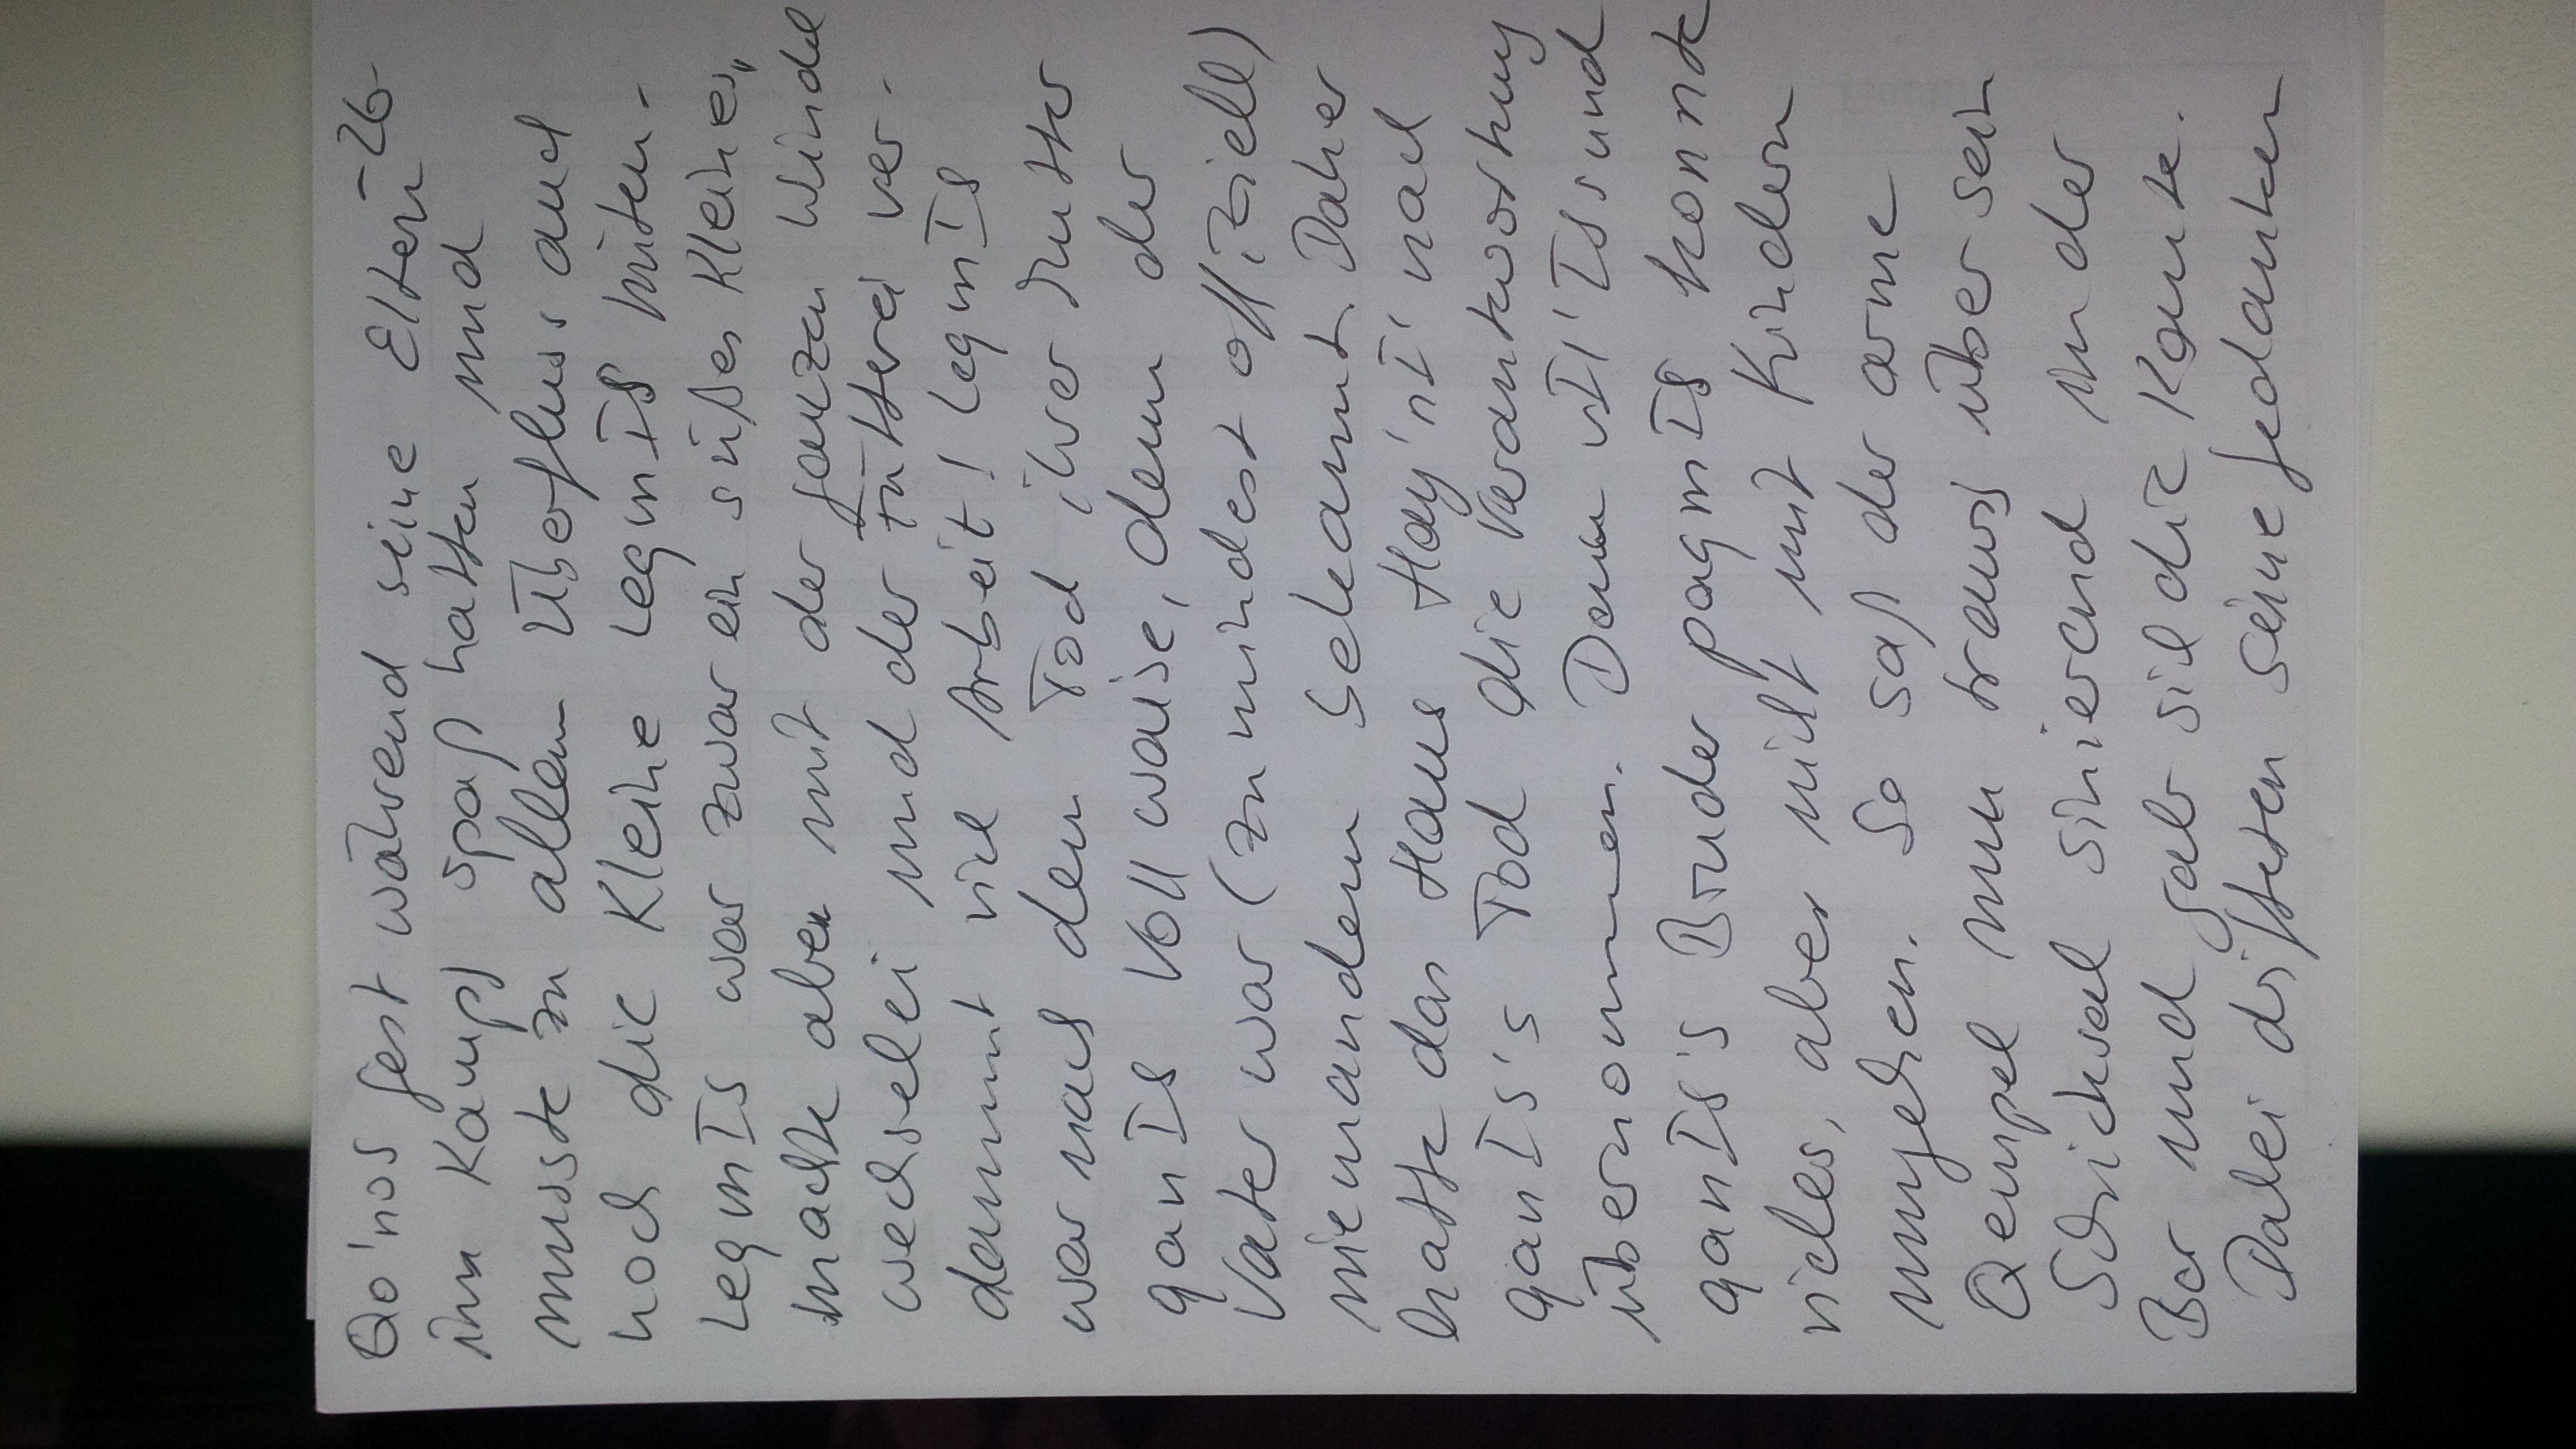 Qo'nos fest während seine Eltern -26-
im Kampf Spaß hatten und
musste zu allem Überfluss auch
noch die Kleine LeqmIS hüten.
LeqmIS war zwar ein süßes Kleines,
machte aber mit der ganzen Windel
wechselei und der fütterei ver-
dammt viel Arbeit! LeqmIS
war nach dem Tod ihrer Mutter
qanIS Vollwaise, denn der
Vater war (zumindest offiziell)
niemandem bekannt. Daher
hatte das Haus Hay'nI' nach
qanIS's Tod die Verantwortung
übernommen. Denn vIl'ISs und
qanIS's Bruder paqmIS konnte
vieles, aber nicht mit Kindern
umgehen. So saß der arme
Qeupel nun traurig über sein
Schicksal sinierend in der
Bar und gab sich die Kante.
Dabei drifteten seine Gedanken